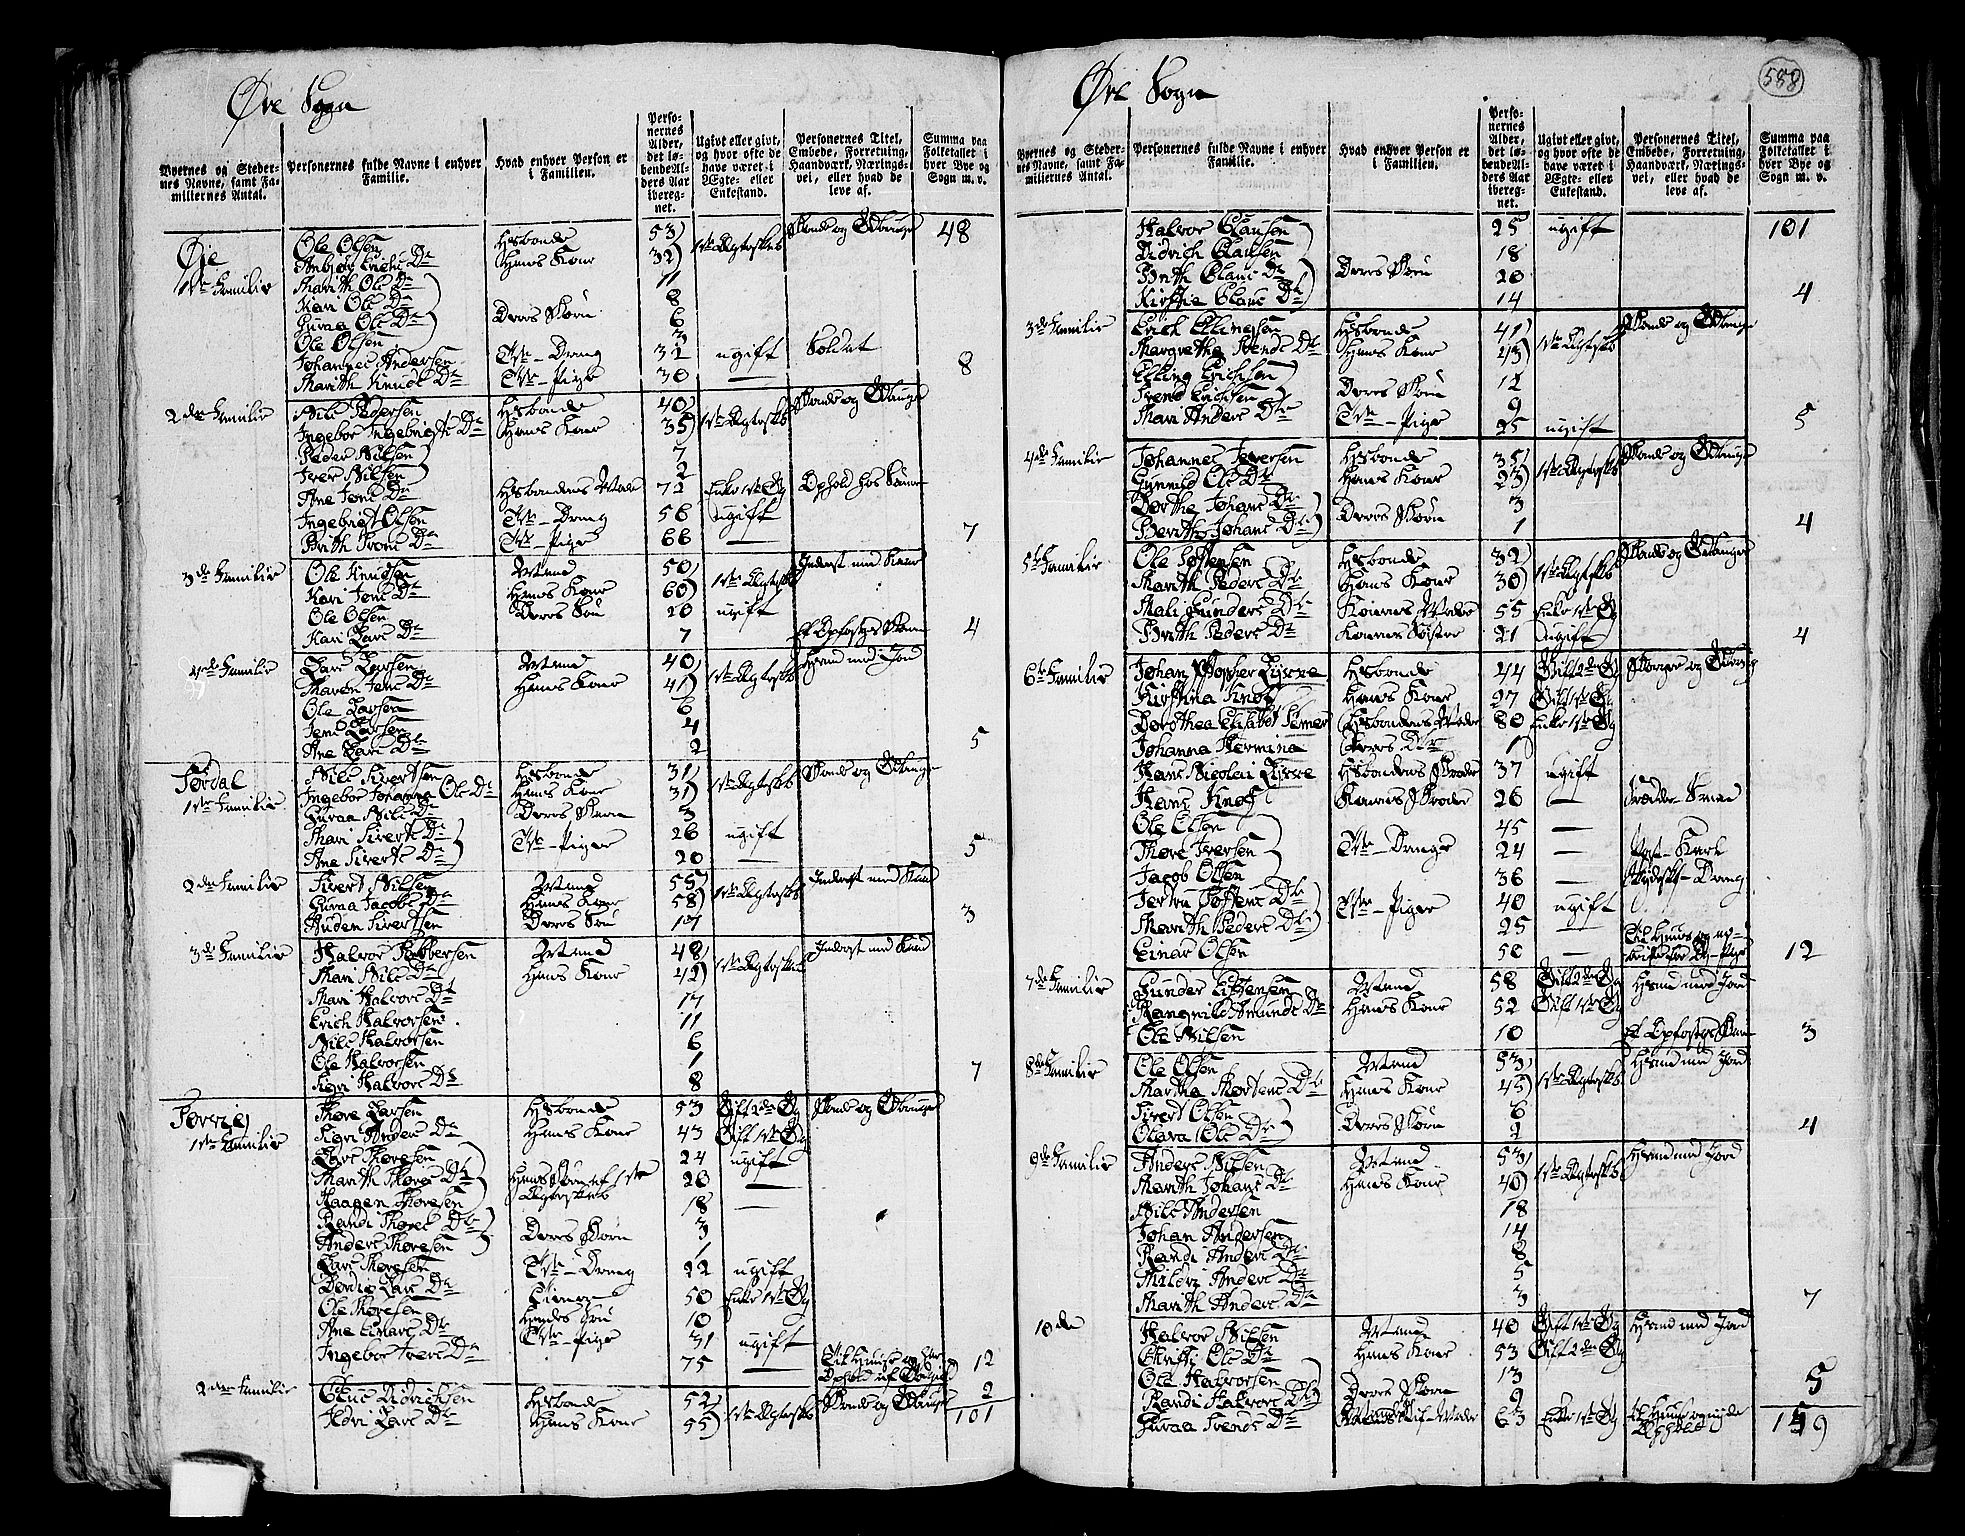 588
Øre Sogn
Byernes og Stedernes Navne, samt Familiernes Antal.
Personernes fulde Navne i enhver Familie.
Hvad enhver Person er i Familien.
Personernes Alder, det løbende Alders Aar iberegnet.
Ugivt eller givt, og hvor ofte de have været i Ægte- eller Enkestand.
Personernes Titel, Embede, Forretning, Haandværk, Næringsvei, eller hvad de leve af.
Summa paa Folketallet i hver Bye og Sogn m. v.
48
Øie 1ste Familie Ole Olsen Hosbonde 53 1ste Ægteskab Bonde og Gdbruger
Anbjør Erichs Dr Hans Kone 32
Marith Ole Dr 11
Kari Ole Dr 8
Guraa Ole Dr Deres Børn 6
Ole Olsen 3
Johannes Andersen Tieneste-Dreng 32 ugift Soldat
Marith Knuds Dr Tieneste-Pige 30 — 8
2den Familie Nils Pedersen Hosbonde 40 1ste Ægteskab Bonde og Gdbruger
Ingebor Ingebrigts Dr Hans Kone 35
Peder Nilsen 7
Iver Nilsen 2
Ane Jens Dr Hosbondens Moder 72 Enke 1ste Æg Ophold hos Sønnen
Ingebrigt Olsen Tieneste-Dreng 56 ugift
Brith Svens Dr Tieneste-Pige 66 — 7
3de Familie Ole Knudsen Mand 50 1ste Ægteskab Inderst med Kone
Kari Jens Dr Hans Kone 60
Ole Olsen Deres Søn 20 ugift
Kari Lars Dr 7 Et Opfostrings Barn 4
4de Familie Lars Larsen Mand 40 1ste Ægteskab Huusmand med Jord
Maren Jens Dr Hans Kone 41
Ole Larsen 6
Jens Larsen 4
Ane Lars Dr 2 5
Tørdal 1ste Familie Nils Sivertsen Hosbonde 31 1ste Ægteskab Bonde og Gdbruger
Ingebor Johanna Ole Dr Hans Kone 31
Guraa Nils Dr Deres Barn 3
Mari Siverts Dr Tieneste-Piger 26 ugift
Ane Siverts Dr 20 — 5
2den Familie Sivert Nilsen Mand 55 1ste Ægteskab Inderst med Kone
Guraa Jacobs Dr Hans Kone 58
Auden Sivertsen Deres Søn 17 3
3de Familie Halvor Mand 48 1ste Ægteskab Inderst med
Mari Nils Dr Hans Kone 42
Mari Halvors Dr 17
Erich Halvorsen 11
Nils Halvorsen 6
Ole Halvorsen 1
Sigri Halvors Dr 8 7
1ste Familie Thore Larsen Hosbonde 53 Gift 2den Æg Bonde og Gdbruger
Sigri Anders Dr Hans Kone 43 Gift 1ste Æg
Lars Thoresen 24 ugift
Marith Thores Dr Hans Børn af 1ste Ægteskab 20 —
Haagen Thoresen 18 —
Randi Thores Dr 3
Anders Thoresen Deres Børn 1
Lars Thoresen Tieneste-Dreng 22 ugift
Lars Dr 50 Enke 1ste Æg
Ole Thoresen Hendes Søn 10
Ane Einars Dr Tieneste-Pige 31 ugift
Ingebor Ivers Dr 75 — Til Huuse og har Ophold af 12
2den Familie Claus Didrichsen Hosbonde 52 1ste Ægteskab Bonde og Gdbruger 2
Ildri Lars Dr Hans Kone 55 101
Øre Sogn
Byernes og Stedernes Navne, samt Familiernes Antal.
Personernes fulde Navne i enhver Familie.
Hvad enhver Person er i Familien.
Personernes Alder, det løbende Alders Aar iberegnet.
Ugivt eller givt, og hvor ofte de have været i Ægte- eller Enkestand.
Personernes Titel, Embede, Forretning, Haandværk, Næringsvei, eller hvad de leve af.
Summa paa Folketallet i hver Bye og Sogn m. v.
Halvor Clausen 25 ugift 101
Didrich Clausen 18
Brith Claus Dr Deres Børn 20
Kirstie Claus Dr 14 4
3de Familie Erich Ellingsen Hosbonde 41 1ste Ægteskab Bonde og Gdbruger
Margrethe Svends Dr Hans Kone 43
Elling Erichsen Deres Børn 12
Svend Erichsen 9
Mari Anders Dr Tieneste-Pige 25 ugift 5
4de Familie Johannes Iversen Hosbonde 35 1ste Ægteskab Bonde og Gdbruger
Gunnild Ole Dr Hans Kone 23
Dorthe Johans Dr Deres Børn 3
Berith Johans Dr 1 4
5te Familie Ole Hosbonde 32 1ste Ægteskab Bonde og Gdbruger
Marith Peders Dr Hans Kone 30
Mali Gunders Dr Konens Moder 55 Enke 1ste Æg
Brith Peders Dr Konens Søster 21 ugift 4
6te Familie Johan Hosbonde 44 Gift 2de Æg
Kirstina Knof Hans Kone 27 Gift 1ste Æg
Dorothea Elisabet Hosbondens Moder 80 Enke 1ste Æg
Johanna Hermina Deres Dr 1
Hans Nicolai Hosbondens Broder 37 ugift
Hans Knof Konens Broder 26 —
Ole Olsen 45 —
Thore Iversen Tieneste-Drenge 24 —
Jacob Olsen 36 —
Dr Tieneste-Piger 40 ugift
Marith Peders Dr 25 —
Einar Olsen 50 — 12
7de Familie Gunder Mand 58 Gift 2den Æg Huusmand med Jord
Rangnild Amunds Dr Hans Kone 52 Gift 1ste Æg
Ole Nilsen 10 Et Opfostrings Barn 3
8de Familie Ole Olsen Mand 53 1ste Ægteskab Huusmand med Jord
Martha Mortens Dr Hans Kone 45
Sivert Olsen Deres Børn 6
Olava Ole Dr 2 4
9de Familie Anders Nilsen Mand 53 1ste Ægteskab Huusmand med Jord
Marith Johans Dr Hans Kone 40
Nils Andersen 18
Johan Andersen 14
Randi Anders Dr 8
Mildri Anders Dr 5
Marith Anders Dr 3 7
10de Halvor Nilsen Mand 40 Gift 1ste Æg Huusmand med Jord
Christi Ole Dr Hans Kone 53 Gift 2den Æg
Ole Halvorsen 13 5
Randi Halvors Dr Deres Børn 9
Guraa Svends Dr Moder 63 Enke 1ste Æg 159